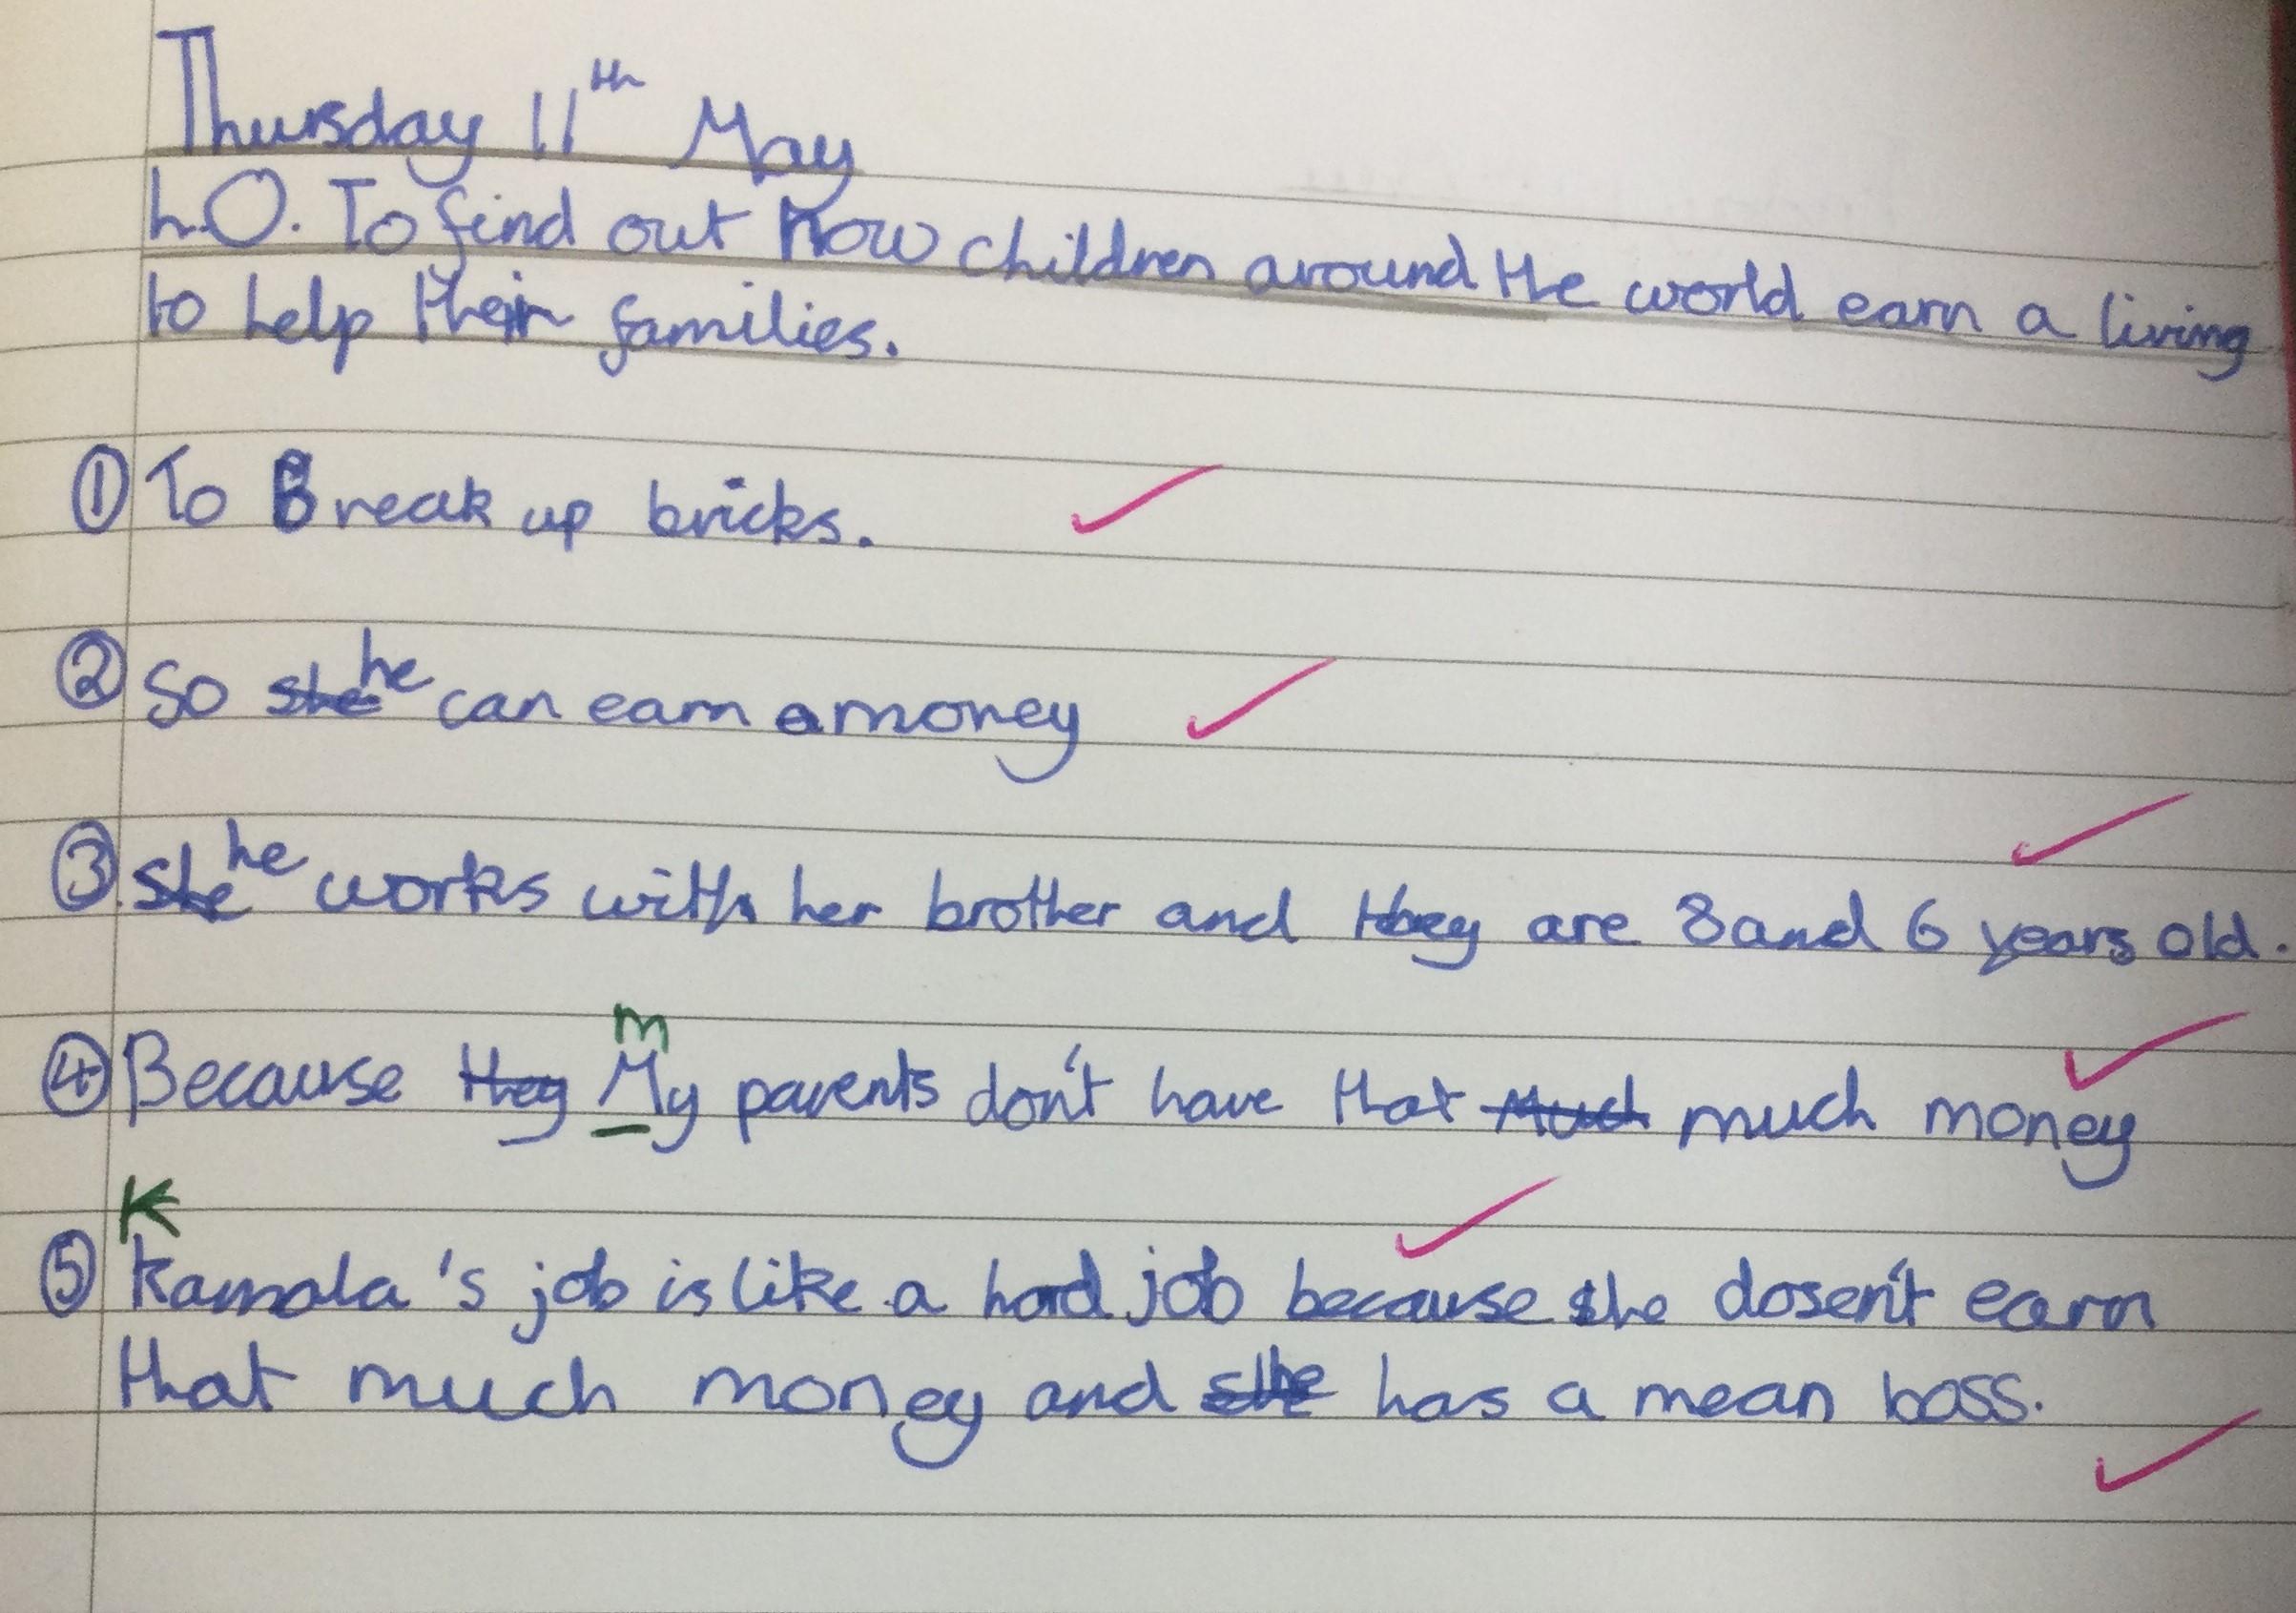 Thursday 11th May
L.O. To find out how children around the world earn a living
to help their families.
① To Break up bricks.
② So she he can earn a money
③ she he works with her brother and they are 8 and 6 years old.
m
④ Because they My parents don't have that much much money
K
⑤ kamala's job is like a hard job because she dosen't earn
that much money and she has a mean boss.